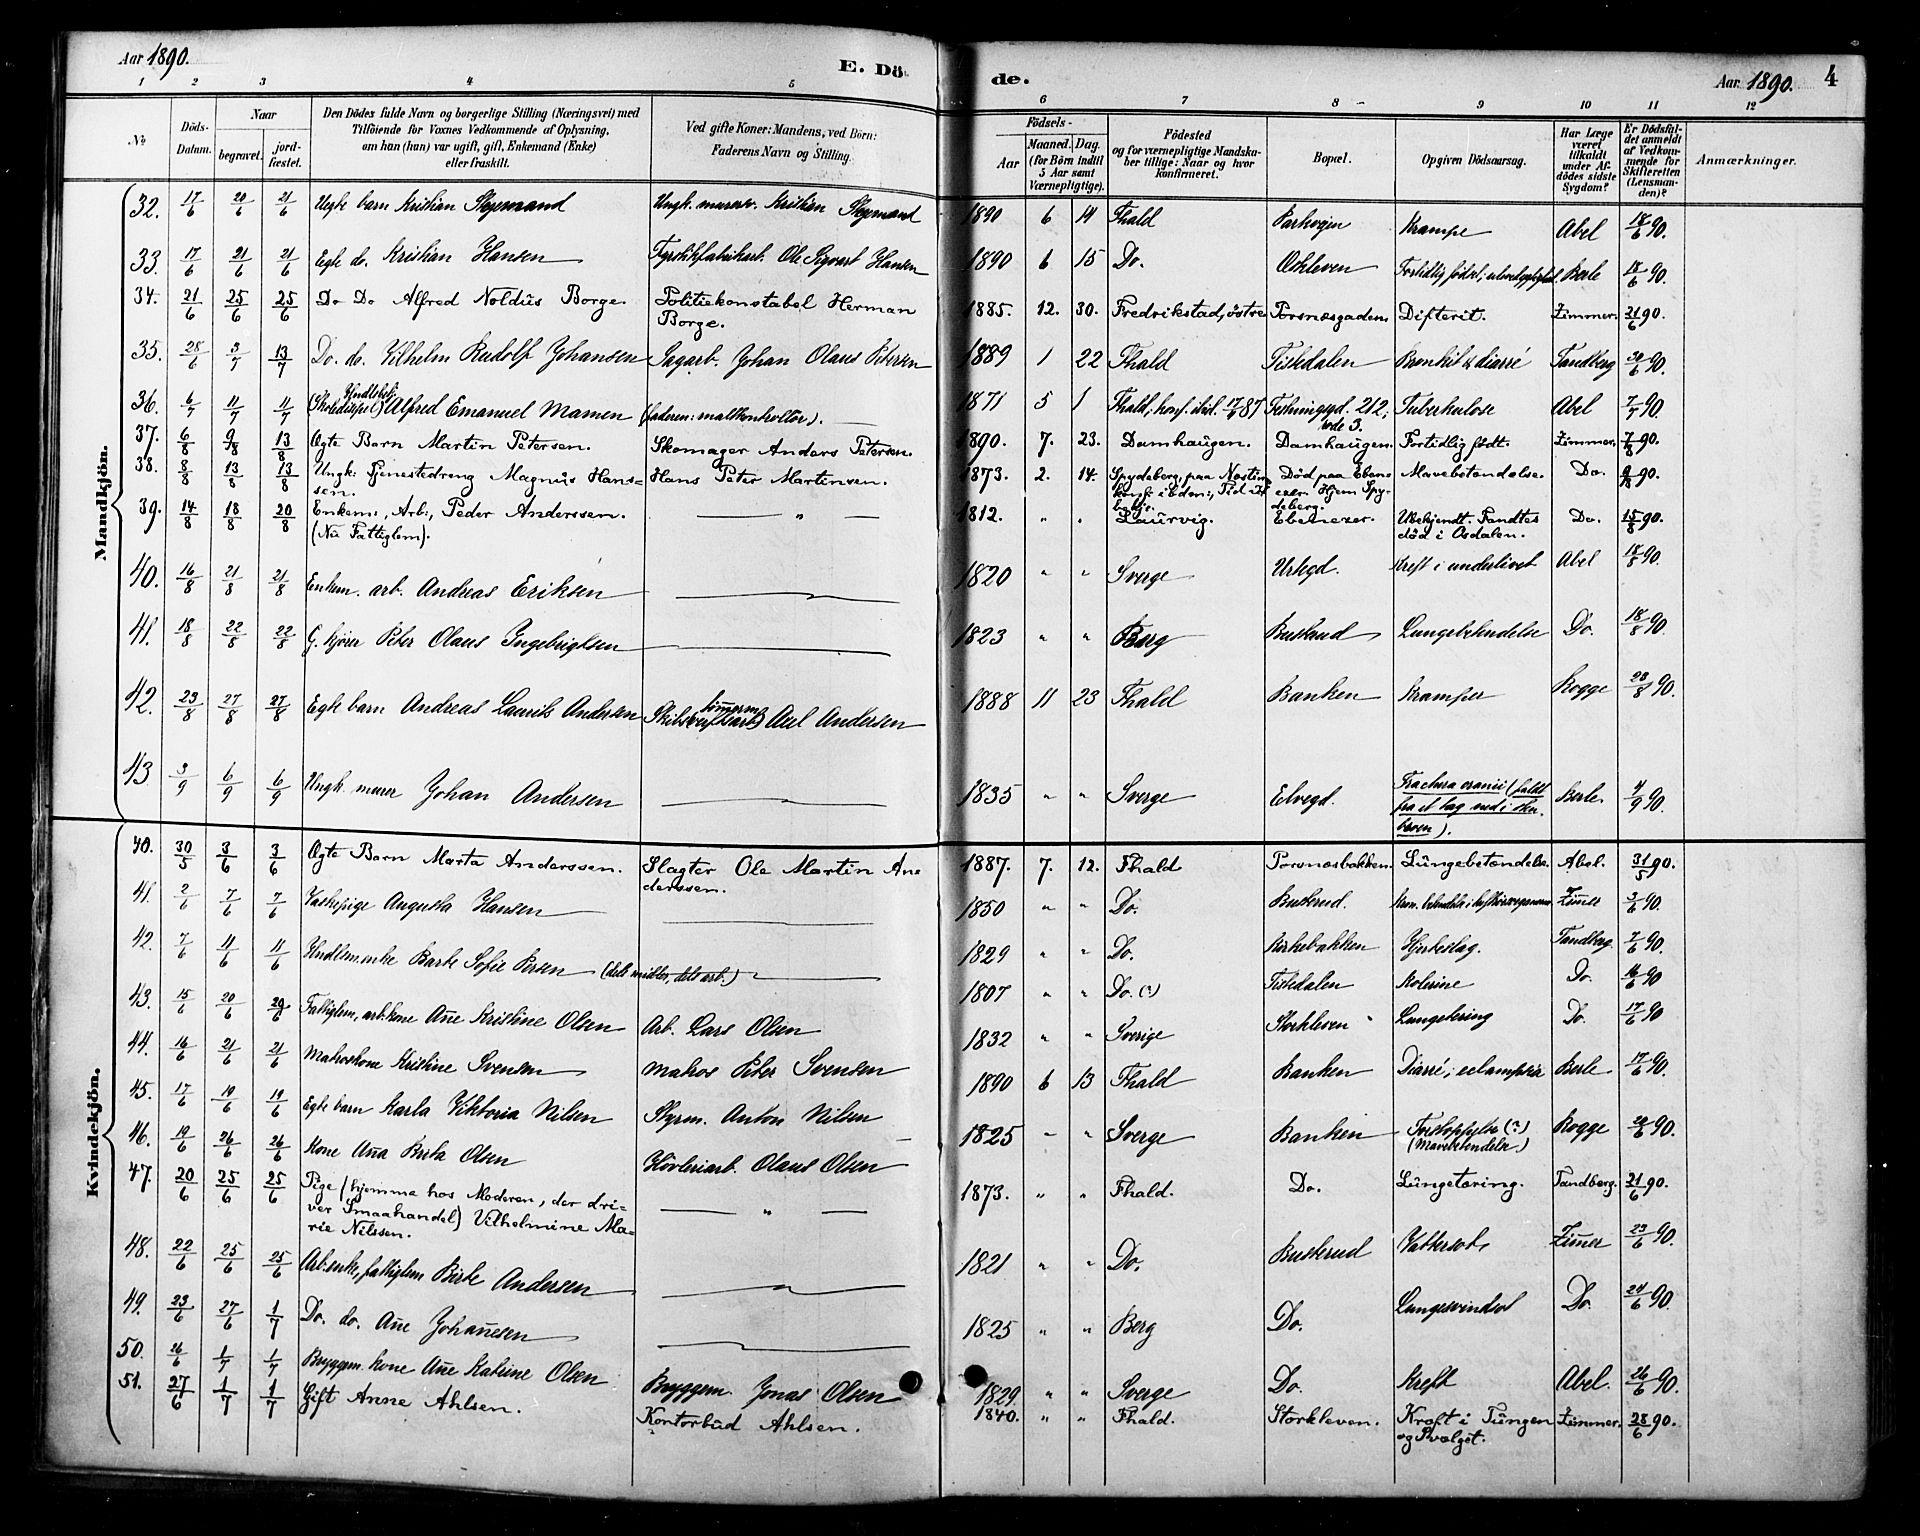 Aar 1890.
E. Dö
de.
Aar 1890.
4
1 2 3 4 5 6 7 8 9 10 11 12
No
Döds-Datum.
Naar
begravet.
jord-fæstet.
Den Dödes fulde Navn og borgerlige Stilling (Næringsvei) med
Tilföiende for Voxnes Vedkommende af Oplysning,
om han (hun) var ugift, gift, Enkemand (Enke)
eller fraskilt.
Ved gifte Koner: Mandens, ved Börn:
Faderens Navn og Stilling.
Födsels-
Aar
Maaned. Dag.
(for Börn indtil
5 Aar samt
Værnepligtige).
Födested
og for værnepligtige Mandska-
ber tillige: Naar og hvor
konfirmeret.
Bopæl.
Opgiven Dödsaarsag.
Har Læge
været
tilkaldt
under Af-
dödes sidste
Sygdom?
Er Dödsfal-
det anmeldt
af Vedkom-
mende for
Skifteretten
(Lensman-
den)?
Anmærkninger.
Mandkjön.
32. 17/6 20/6 21/6 Uegte barn Kristian Skjemand Ungk. murer Kristian Skjemand 1890 6 14 Fhald Parkvejen Krampe Abel 18/6 90.
33. 17/6 21/6 21/6 Egte do. Kristian Hansen Fyrstikfabrikarb. Ole Sigvart Hansen 1890 6 15 Do. Fortidlig födt Berle 18/6 90.
34. 21/6 25/6 25/6 Do Do Alfred Noldus Borge. Politiekonstabel Herman
Borge. 1885. 12. 30. Fredrikstad, östre Porsnæsgaden Difterit. Zimmer. 21/6 90.
35. 28/6 3/7 13/7 Do. do. Vilhelm Rudolf Johansen Sagarb. Johan Olaus Petersen 1889 1 22 Fhald Tistedalen Bronkit & diarré Tandberg 30/6 90.
36. 6/7 11/7 11/7 Alfred Emanuel Mamen (faderen: maltkontrollör). 1871 5 1 Fhald, konf. ibid. 87 Festningsgd. 212,
rode 3. Tuberkulose Abel 7/7 90.
37. 6/8 9/8 13/8 Ægte Barn Martin Petersen. Skomager Anders Petersen. 1890. 7. 23. Damhaugen. Damhaugen. Fortidlig födt. Zimmer. 7/8 90.
38. 8/8 13/8 13/8 Ungk: Tjenestedreng Magnus Hans-
sen. Hans Peter Martinsen. 1873. 2. 14. Spydeberg, paa Död paa Eben
ezer. Hjem Spy-
deberg. Mavebetændelse. Do. 9/8 90.
39. 14/8 18/8 20/8 Enkem:, Arb:, Peder Anderssen.
(Nu Fattiglem). " 1812. " " Laurvig. Ebenezer. Ubekjendt. Fandtes
död i Osdalen. Do. 15/8 90.
40. 16/8 21/8 21/8 Enkem. arb. Andreas Eriksen 1820 " " Sverge Urtegd. Kreft i underlivet Abel 18/8 90.
41. 18/8 22/8 22/8 G. kjörer Peter Olaus Ingebrigtsen 1823 " " Berg Busterud Lungebetendelse Do. 18/8 90.
42. 23/8 27/8 27/8 Egte barn Andreas Laurits Andersen Axel Andersen 1888 11 23 Fhald Banken Kramper Rogge 28/8 90.
43 3/9 6/9 6/9 Ungk. murer Johan Andersen 1835 " " Sverge Elvegd. Fractura cranii (faldt
fra et tag ned i
). Berle. 4/9 90.
Kvindekjön.
40. 30/5 3/6 3/6 Ægte Barn Marta Anderssen. Slagter Ole Martin An-
derssen. 1887. 7. 12. Fhald Porsnæsbakken. Lungebetændelse. Abel. 31/5 90.
41. 2/6 7/6 7/6 Vaskepige Augusta Hansen 1850 " " Do. Busterud. Zimer 3/6 90.
42. 7/6 11/6 11/6 Husllem. enke Berte Sofie (dels midler, dels arb.) 1829 " " Do. Kirkebakken Hjerteslag. Tandberg 7/6 90.
43. 15/6 20/6 20/6 Fattiglem, arb. kone Ane Kristine Olsen Arb. Lars Olsen 1807 " " Do. (?) Tistedalen Kolerine Do. 16/6 90
44. 16/6 21/6 21/6 Matroskone Kristine Svensen matros Peter Svensen 1832 " " Sverige Storkleven Lungetering Do. 17/6 90
45. 17/6 19/6 19/6 Egte barn Karla Viktoria Nilsen Styrm. Anton Nilsen 1890 6 13 Fhald Banken Diarré, eclampsia Berle 17/6 90.
46. 19/6 26/6 26/6 Kone Ana Brita Olsen Hövleriarb. Olaus Olsen 1825 " " Sverge Banken Forstoppelse (?)
(Mavebetendelse) Rogge 20/6 90.
47. 20/6 25/6 25/6 Pige (hjemme hos Moderen, der dri-
ver Smaahandel) Vilhelmine Ma-
rie Nilssen. " 1873. " " Fhald. Do. Lungetæring. Tandberg. 21/6 90.
48. 22/6 25/6 25/6 Arb: enke, fattiglem Birte Andersen 1821 " " Do. Busterud Vattersot Zimer 23/6 90.
49. 23/6 27/6 1/7 Do. do. Ane Johanesen 1825 " " Berg Do. Lungesvindsot Do. 24/6 90.
50. 26/6 1/7 1/7 Bryggem. kone Ane Katrine Olsen Bryggem. Jonas Olsen 1829. " " Sverge Do. Kreft Abel. 26/6 90.
51. 27/6 1/7 1/7 Gift Anne Ahlsen. Kontorbud Ahlsen. 1840. " " Fhald. Storkleven. Kræft i Tungen
og Svælget. Zimmer. 28/6 90.